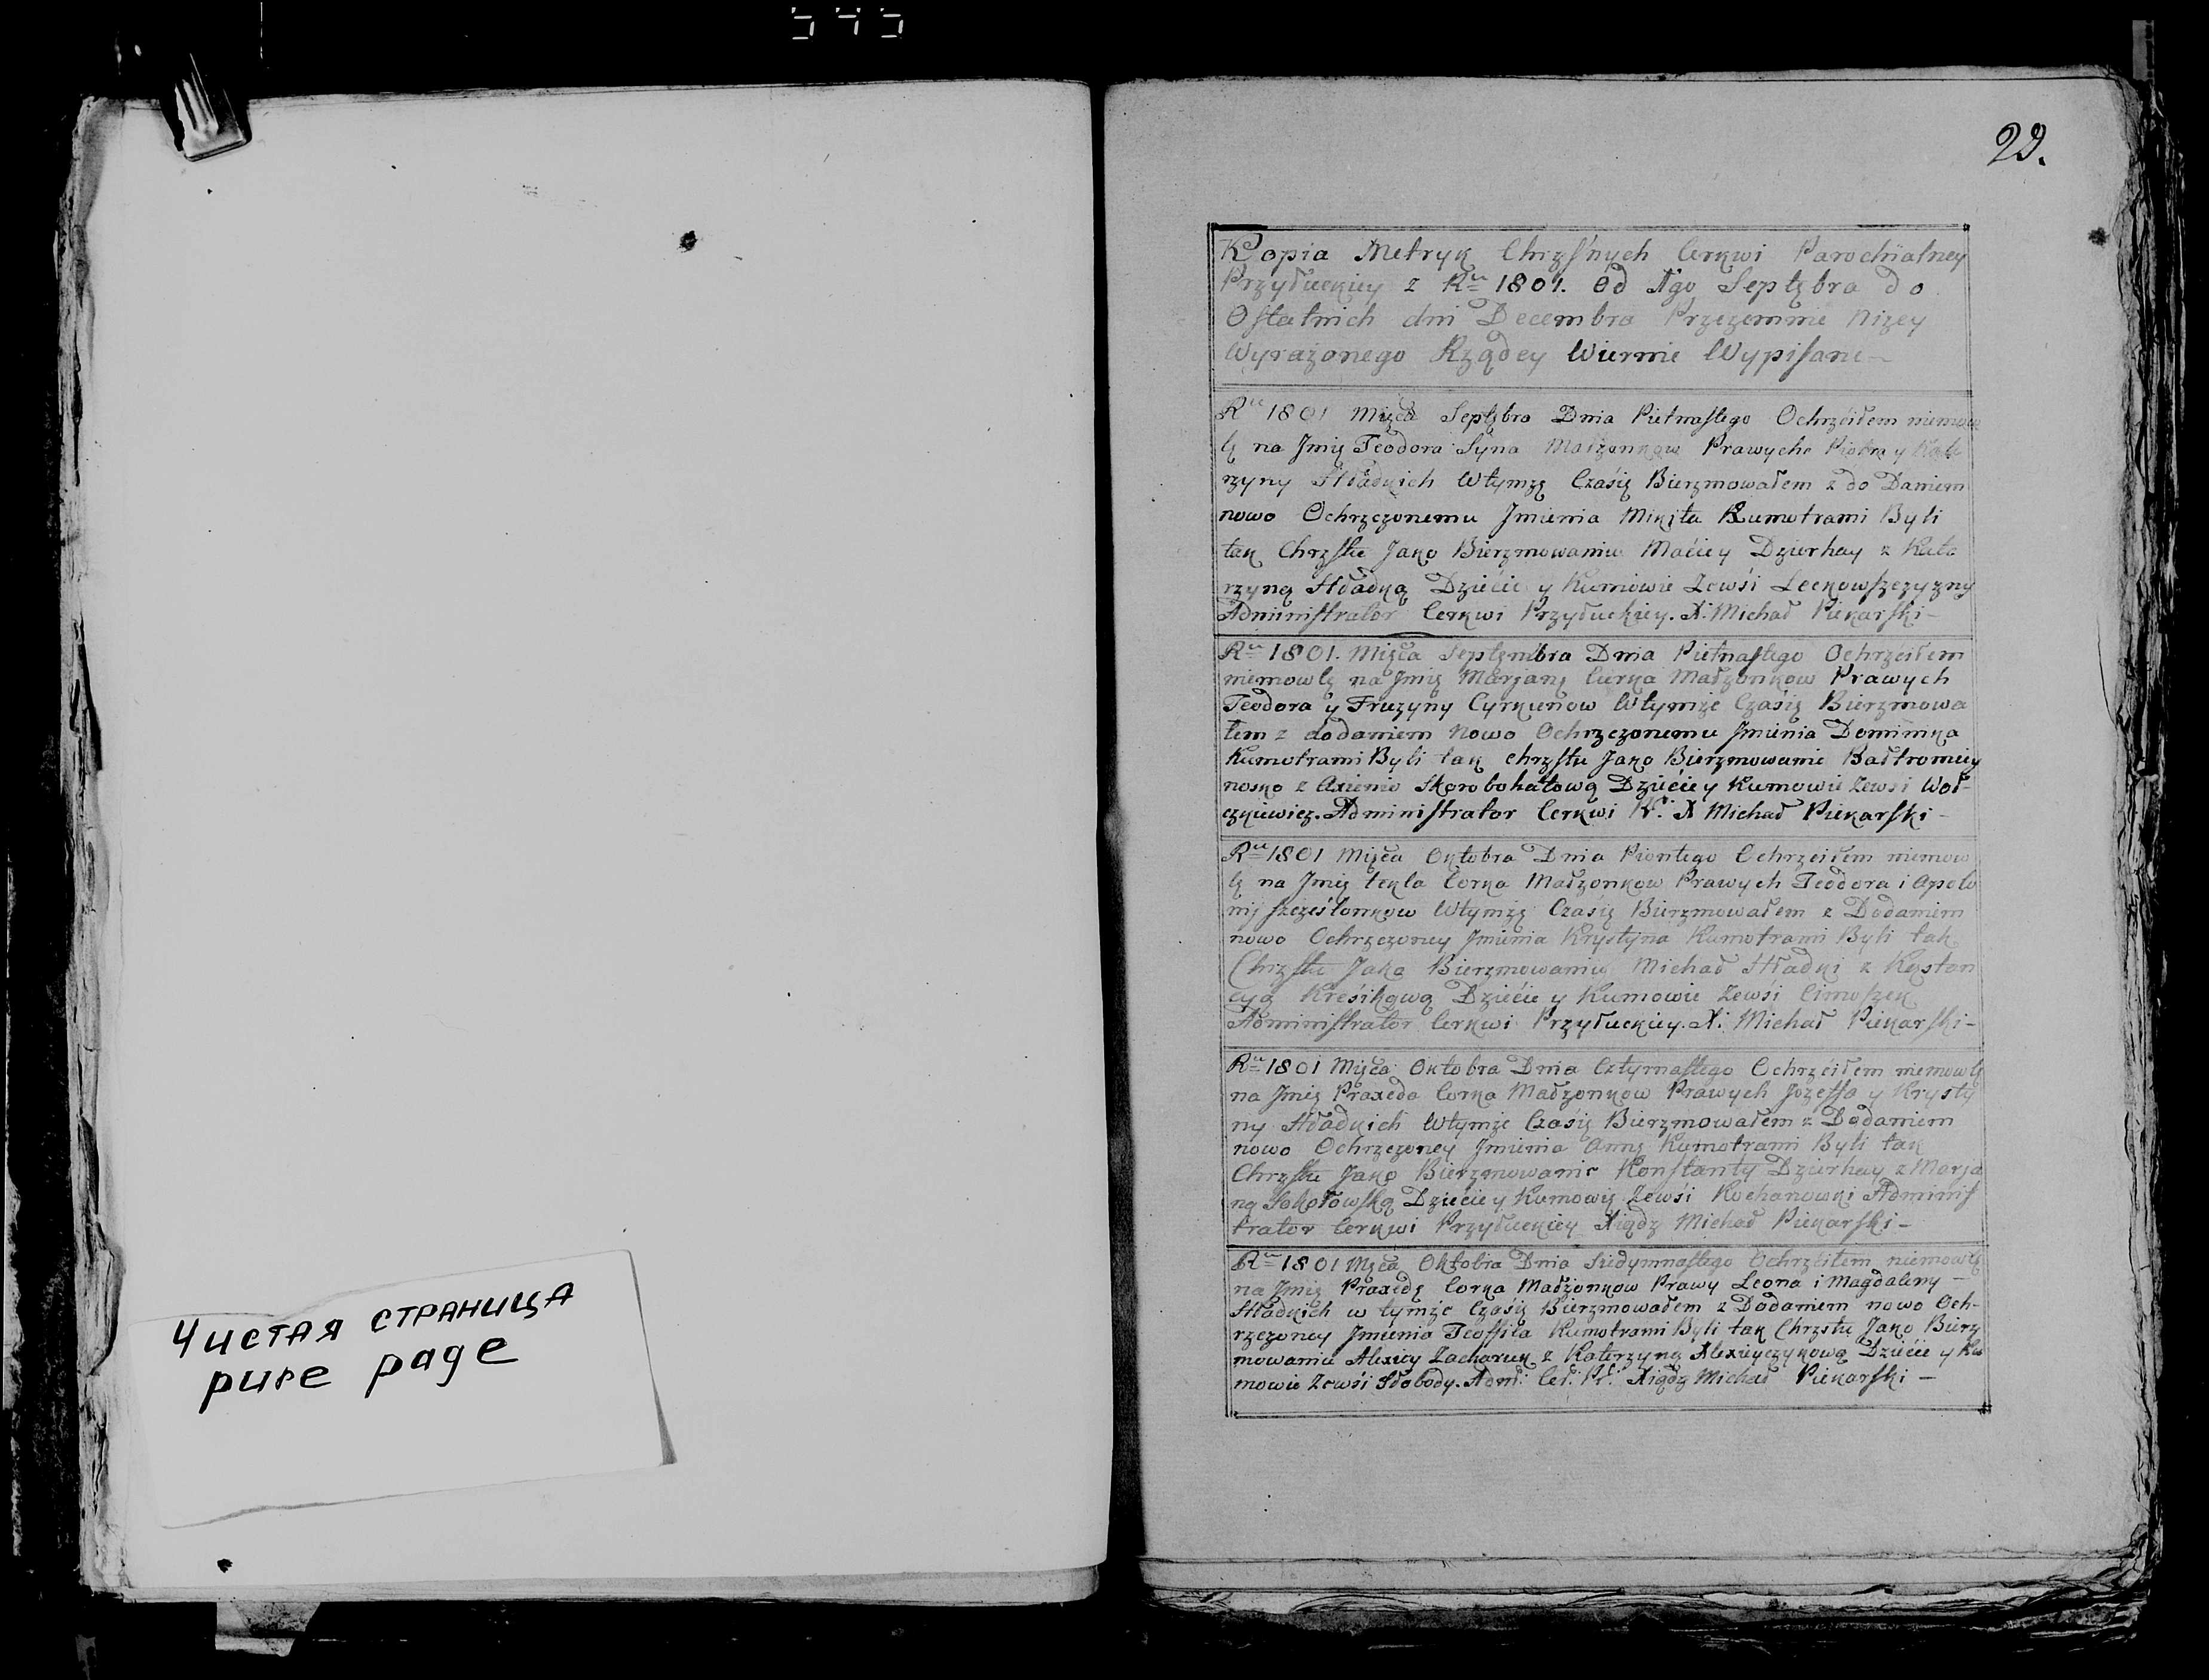 545
Чистая страница
pure page
29.
Kopia Metryk Chrzsnych Cerkwi Parochialney
Przyłuckiey z Ru 1801. Od 1go Septębra do
Ostatnich dni Decembra Przezemnie Niżey
Wyrażonego Rządcy Wiernie Wypisane –
Ru 1801 Mięca Septębra Dnia Pietnastego Ochrzciłem niemow
lę na Jmię Teodora Syna Małżonkow Prawych Piotra y Kate
rzyny Hładkich Wtymże Czasię Bierzmowałem z do Daniem
nowo Ochrzczonemu Jmienia Mikita Kumotrami Byli
tak Chrzstu Jako Bierzmowaniu Maciey Dzierhay z Kata
rzyną Hładką Dziécie y Kumowie Zewśi Leckowszczyzny
Administrator Cerkwi Przyłuckiey. X. Michał Piekarski –
Ru 1801. Mięca Septęmbra Dnia Pietnastego Ochrzciłem
niemowlę na Jmię Marjanę Curka Małżonkow Prawych
Teodora y Fruzyny Cyrkunow Wtymże Czasię Bierzmowa
łem z dodaniem Nowo Ochrzczonemu Jmienia Dominika
Kumotrami Byli tak chrzstu Jako Bierzmowanie Bałtromiey
nosko z Axienio Skorobohatową Dziécie y Kumowie Zewsi Woł-
czkiewicz. Administrator Cerkwi Pr. X Michał Piekarski –
Ru 1801 Mięca Oktobra Dnia Piontego Ochrzciłem niemow
lę na Jmię tekla Corka Małżonkow Prawych Teodora i Apolo
nij Wtymżę Czasię Bierzmowałem z Dodaniem
nowo Ochrzczoney Jmienia Krystyna Kumotrami Byli tak
Chrzstu Jako Bierzmowaniu Michał Hładki z Kostan
cyą Kreśikową Dziécie y Kumowie Zewśi Cimoszek
Administrator Cerkwi Przyłuckiey. X. Michał Piekarski –
Ru 1801 Mięca Oktobra Dnia Cztyrnastego Ochrzciłem niemowlę
na Jmię Praxeda Corka Małżonkow Prawych Jozefa y Krysty
ny Hładkich Wtymże Czasię Bierzmowałem z Dodaniem
nowo Ochrzczoney Jmienia Anny Kumotrami Byli tak
Chrzstu Jako Bierzmowanie Konstanty Dzierhay z Marja
ną Sokołowską Dziecie y Kumowię Zewśi Kochanowki Adminis
trator Cerkwi Przyłuckiey Xiądz Michał Piekarski –
Ru 1801 Mięca Oktobra Dnia Siedymnastego Ochrzciłem niemowlę
na Jmię Praxedę Corka Małżonkow Prawy Leona i Magdaleny –
Hładkich w tymże Czasię Bierzmowałem z Dodaniem nowo Och-
rzczoney Jmienia Teoffila Kumotrami Byli tak Chrzstu Jako Bierz
mowaniu Alexiey Zacharuk z Katerzyną Alexieyczykową Dziécie y Ku
mowie Zewśi Słobody. Adm: Cer. Pr. Xiądz Michał Piekarski –